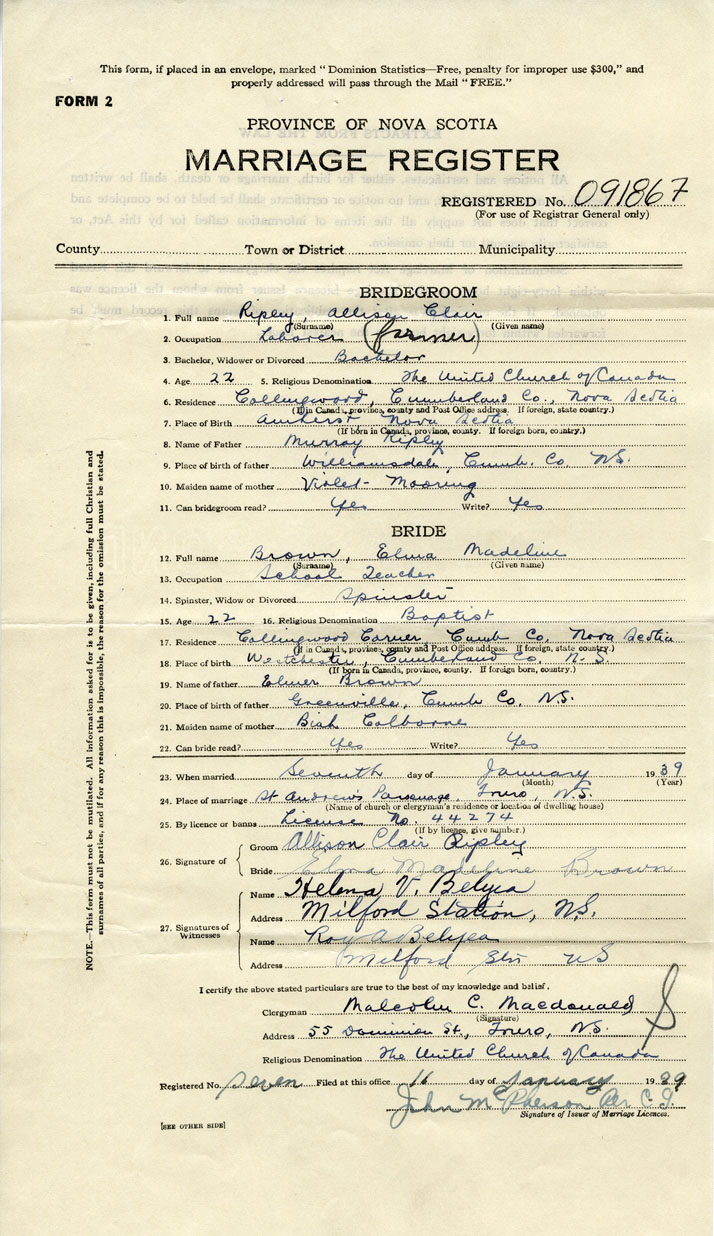 This form, if placed in an envelope, marked "Dominion Statistics—Free, penalty for improper use $300," and
properly addressed will pass through the Mail "FREE."
FORM 2
PROVINCE OF NOVA SCOTIA
MARRIAGE REGISTER
REGISTERED No. 091867
(For use of Registrar General only)
County Town or District Municipality
BRIDEGROOM
1. Full name Ripley, Allison Clair
(Surname) (Given name)
2. Occupation Laborer (farmer)
3. Bachelor, Widower or Divorced Bachelor
4. Age 22 5. Religious Denomination The United Church of Canada
6. Residence Collingwood, Cumberland Co., Nova Scotia
(If in Canada, province, county and Post Office address. If foreign, state country.)
7. Place of Birth Amherst Nova Scotia
(If born in Canada, province, county. If foreign born, country.)
8. Name of Father Murray Ripley
9. Place of birth of father Williamsdale, Cumb. Co. N.S.
10. Maiden name of mother Violet Mooring
11. Can bridegroom read? Yes Write? Yes
BRIDE
12. Full name Brown, Elma Madeline
(Surname) (Given name)
13. Occupation School Teacher
14. Spinster, Widow or Divorced Spinster
15. Age 22 16. Religious Denomination Baptist
17. Residence Collingwood Corner, Cumb Co, Nova Scotia
(If in Canada, province, county and Post Office address. If foreign, state country.)
18. Place of birth Westchester, Cumberland Co. N.S.
(If born in Canada, province, county. If foreign born, country.)
19. Name of father Elmer Brown
20. Place of birth of father Greenville, Cumb Co, N.S.
21. Maiden name of mother Colborne
22. Can bride read? Yes Write? Yes
23. When married Seventh day of January 1939
(Month) (Year)
24. Place of marriage St Andrew's Parsonage, Truro, N.S.
(Name of church or clergyman's residence or location of dwelling house)
25. By licence or banns License No. 44274
(If by licence, give number.)
26. Signature of Groom Allison Clair Ripley
Bride Elma Madeline Brown
27. Signatures of Witnesses Name Helena V. Belyea
Address Milford Station, N.S.
Name Roy A Belyea
Address Milford Stn NS
I certify the above stated particulars are true to the best of my knowledge and belief.
Clergyman Malcolm C. Macdonald
(Signature)
Address 55 Dominion St., Truro, N.S.
Religious Denomination The United Church of Canada
Registered No. Seven Filed at this office 11 day of January 1939
John McPherson Per C.J.
Signature of Issuer of Marriage Licences.
[SEE OTHER SIDE]
NOTE.—This form must not be mutilated. All information asked for is to be given, including full Christian and
surnames of all parties, and if for any reason this is impossible, the reason for the omission must be stated.